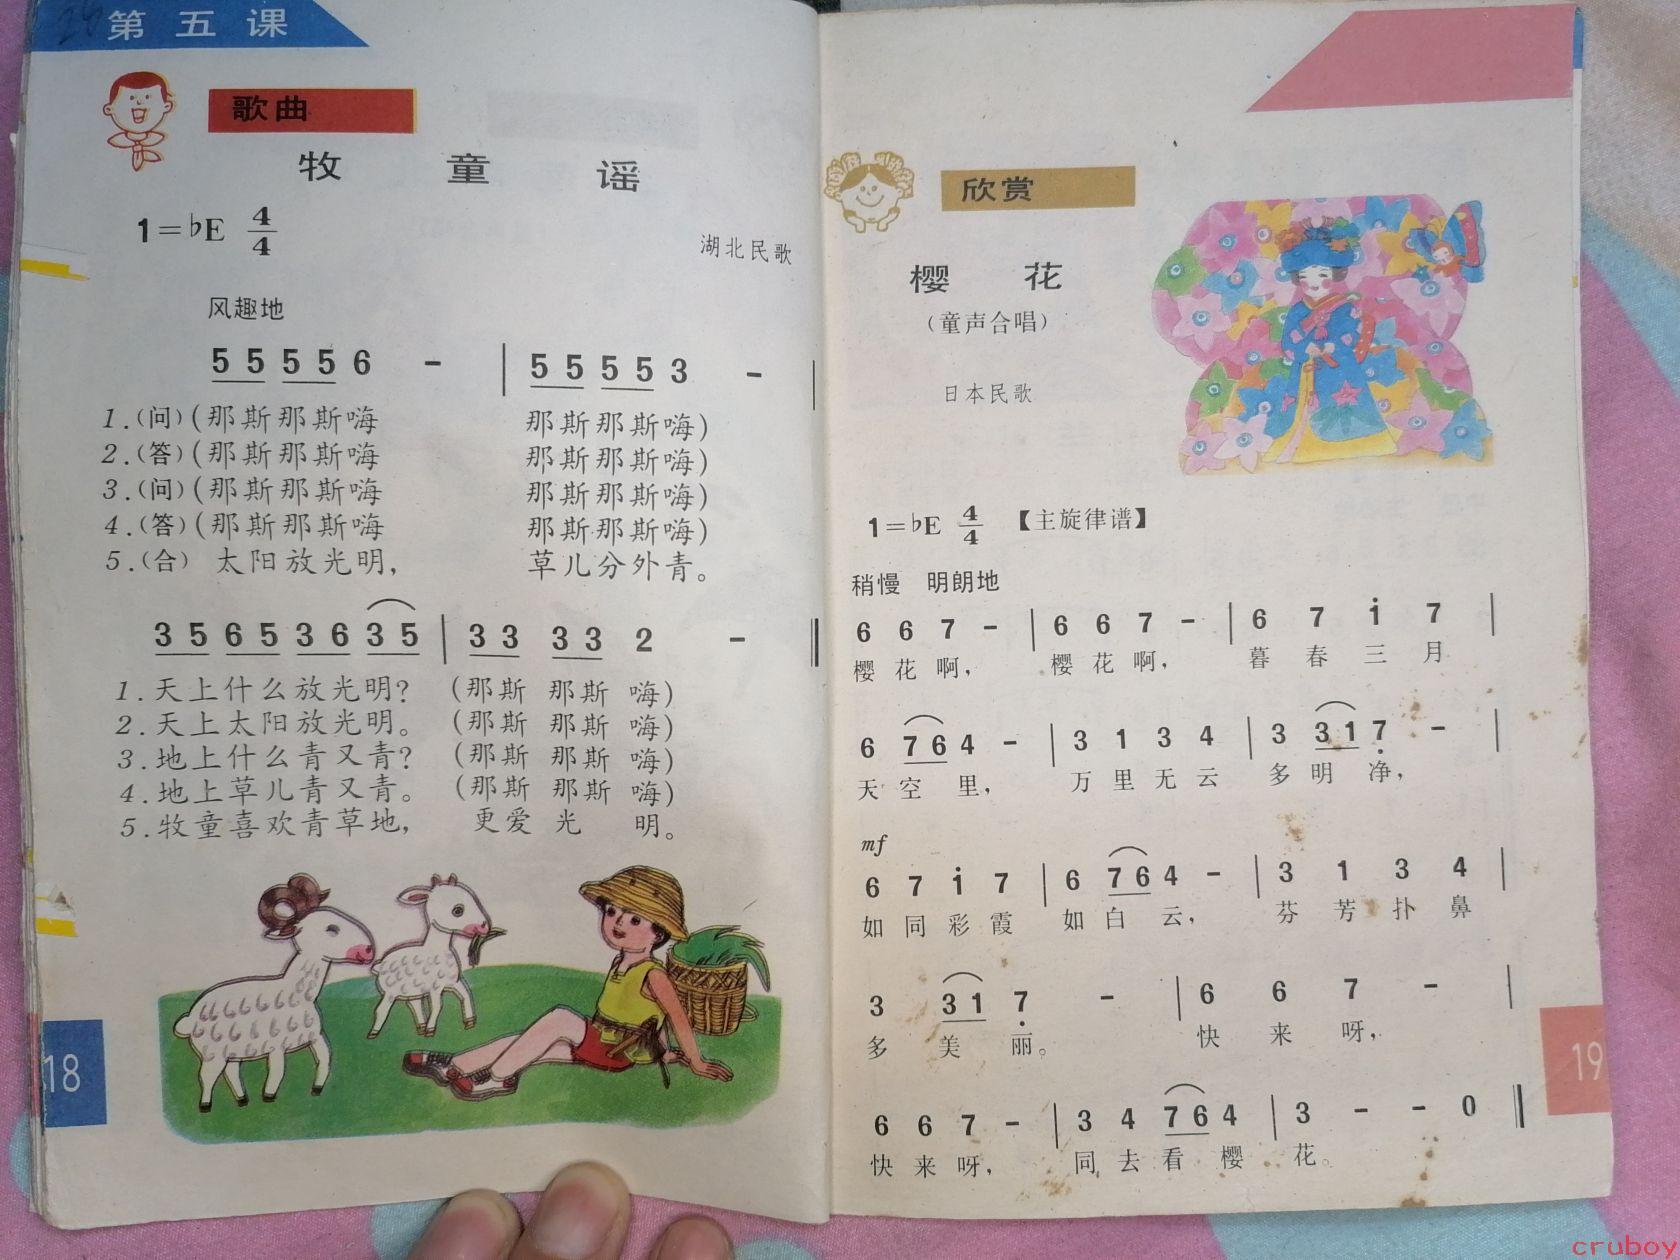 第五课
歌曲
牧童谣
1=♭E 4/4
湖北民歌
风趣地
5 5 5 5 6 - | 5 5 5 5 3 - |
1.(问)(那斯那斯嗨 那斯那斯嗨)
2.(答)(那斯那斯嗨 那斯那斯嗨)
3.(问)(那斯那斯嗨 那斯那斯嗨)
4.(答)(那斯那斯嗨 那斯那斯嗨)
5.(合) 太阳放光明, 草儿分外青。
3 5 6 5 3 6 3 5 | 3 3 3 3 2 - ‖
1.天上什么放光明? (那斯 那斯 嗨)
2.天上太阳放光明。 (那斯 那斯 嗨)
3.地上什么青又青? (那斯 那斯 嗨)
4.地上草儿青又青。 (那斯 那斯 嗨)
5.牧童喜欢青草地, 更爱光明。
18
欣赏
樱花
(童声合唱)
日本民歌
1=♭E 4/4 【主旋律谱】
稍慢 明朗地
6 6 7 - | 6 6 7 - | 6 7 i 7 |
樱花啊, 樱花啊, 暮春三月
6 7 6 4 - | 3 1 3 4 | 3 3 1 7̣ - |
天空里, 万里无云 多明净,
mf
6 7 i 7 | 6 7 6 4 - | 3 1 3 4 |
如同彩霞 如白云, 芬芳扑鼻
3 3 1 7̣ - | 6 6 7 - |
多美丽。 快来呀,
6 6 7 - | 3 4 7 6 4 | 3 - - 0 ‖
快来呀, 同去看樱花。
19
cruboy